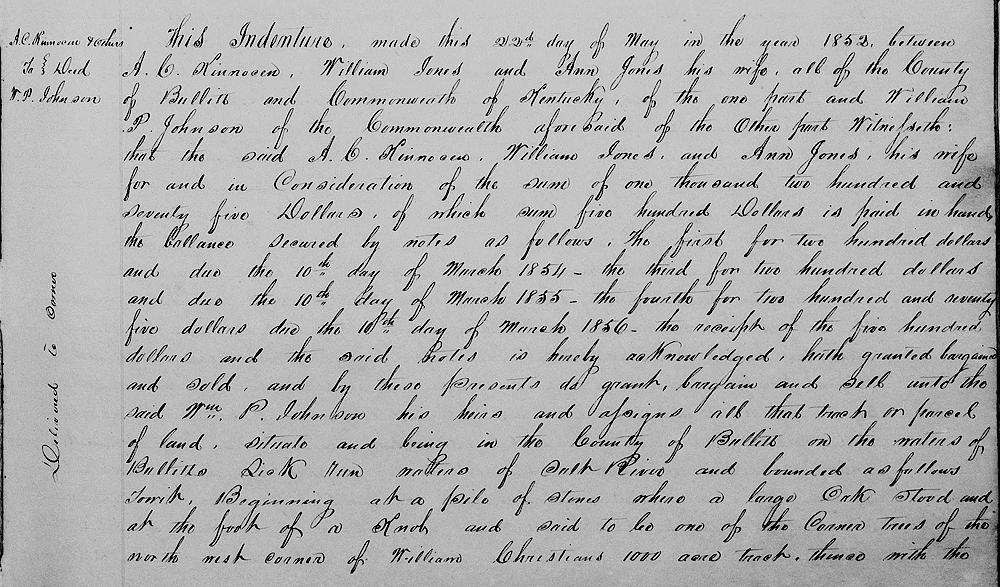 A. C. Kinnocen & others
To } Deed
W. P. Johnson
This Indenture, made this 22nd day of May in the year 1852, between
A. C. Kinnocen, William Jones and Ann Jones his wife, all of the County
of Bullitt and Commonweath of Kentucky, of the one part and William
P. Johnson of the Commonwealth aforesaid of the Other part Witnesseth:
that the said A. C. Kinnocen, William Jones, and Ann Jones, his wife
for and in Consideration of the sum of one thousand two hundred and
seventy five Dollars, of which sum five hundred Dollars is paid in hand,
the ballance secured by notes as follows, The first for two hundred dollars
and due the 10th day of March 1854 - the third for two hundred dollars
and due the 10th day of March 1855 - the fourth for two hundred and seventy
five dollars due the 10th day of March 1856 - the receipt of the five hundred
dollars and the said notes is hereby acknowledged, hath granted bargained
and sold, and by these presents do grant, bargain and sell unto the
said Wm. P. Johnson his heirs and assigns all that track or parcel
of land, situate and being in the County of Bullitt on the waters of
Bullitts Lick Run waters of Salt River and bounded as follows
Towit, Beginning at a pile of stones where a large Oak stood and
at the foot of a Knob and said to be one of the Corner trees of the
north west corner of William Christians 1000 acre tract, thence with the
Delivered to